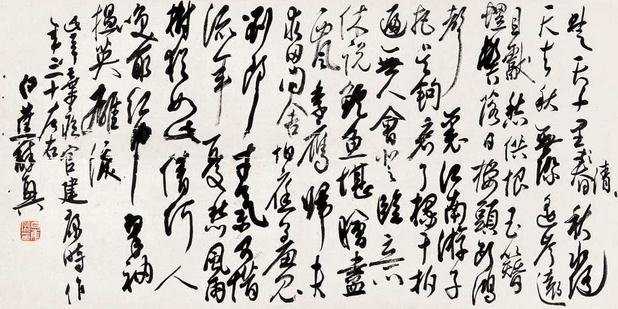 楚天千里清秋水随
天去秋無際遥岑遠
目獻愁供恨玉簪
螺髻落日樓頭斷鴻
聲裏江南游子
把吴鉤看了欄干拍
遍無人會登臨意
休說鱸魚堪膾盡
西風季鷹歸未
求田問舍怕應羞見
劉郎才氣可惜
流年憂愁風雨
樹猶如此倩何人
喚取紅巾翠袖
揾英雄淚
辛棄疾官建康時作
年三十左右
白蕉